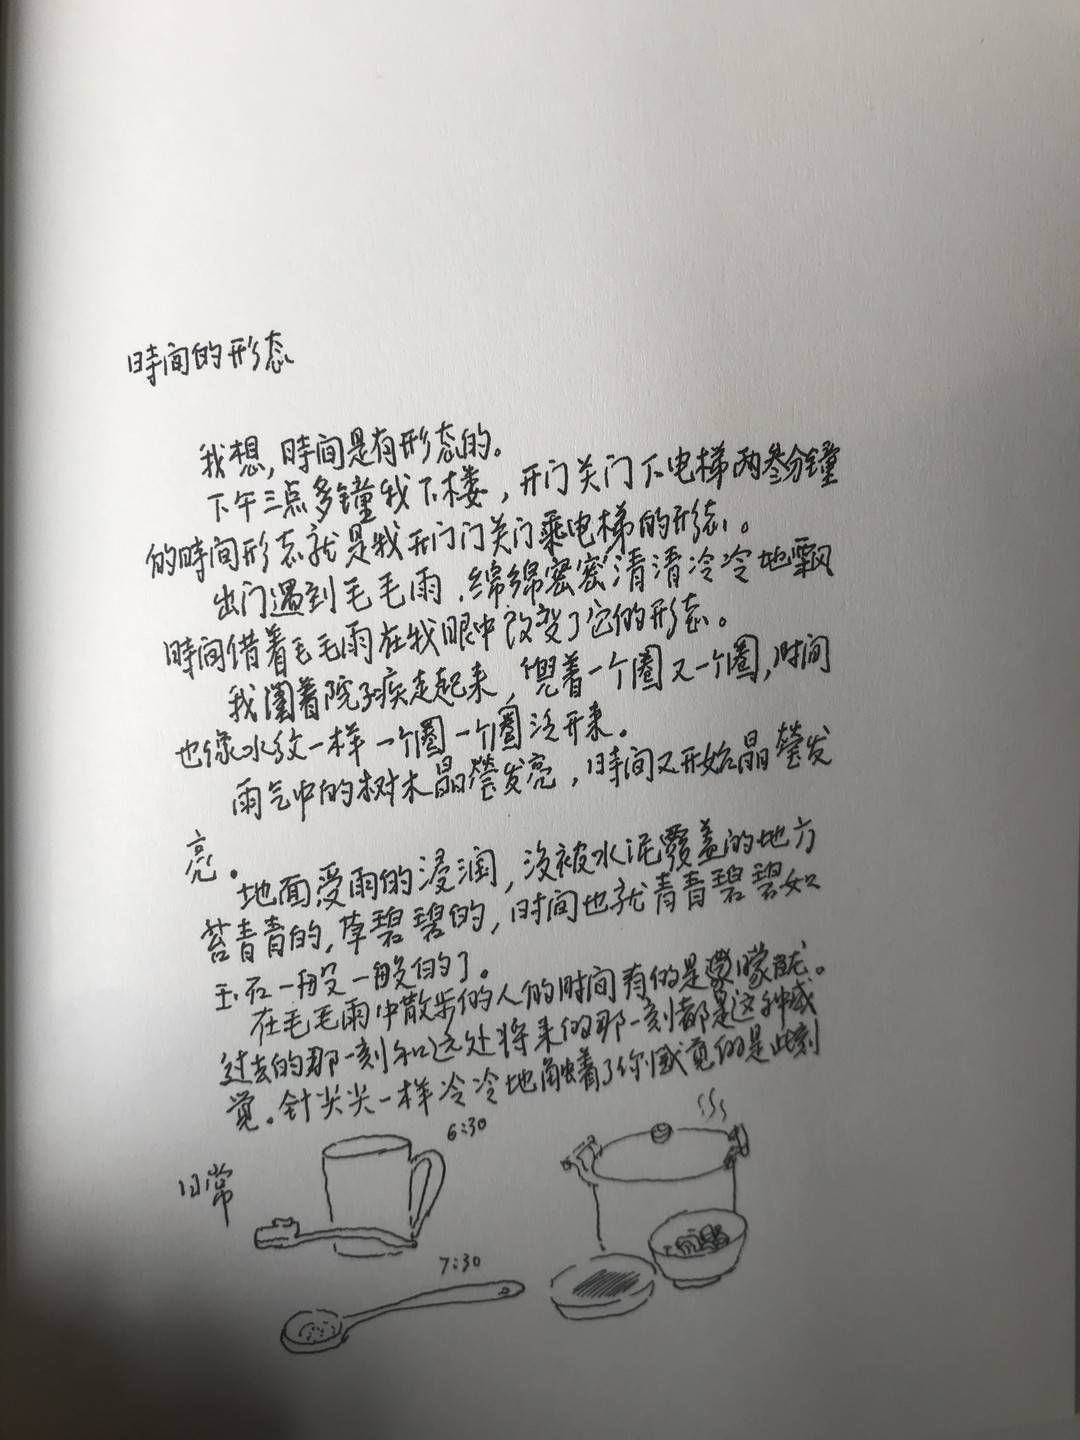 時间的形态
我想,時间是有形态的。
下午三点多鐘我下楼,开门关门下电梯两叁分鐘
的時间形态就是我开门门关门乘电梯的形态。
出门遇到毛毛雨,绵绵密密清清冷冷地飘
時间借着毛毛雨在我眼中改变了它的形态。
我围着院子疾走起来,兜着一个圈又一个圈,时间
也像水纹一样一个圈一个圈泛开来。
雨气中的树木晶莹发亮,時间又开始晶莹发
亮。
地面受雨的浸润,没被水泥覆盖的地方
苔青青的,草碧碧的,时间也就青青碧碧如
玉石一般一般的了。
在毛毛雨中散步的人的时间有的是朦胧。
过去的那一刻和远处将来的那一刻都是这种感
觉。针尖尖一样冷冷地触着了你感觉的是此刻
日常
6:30
7:30